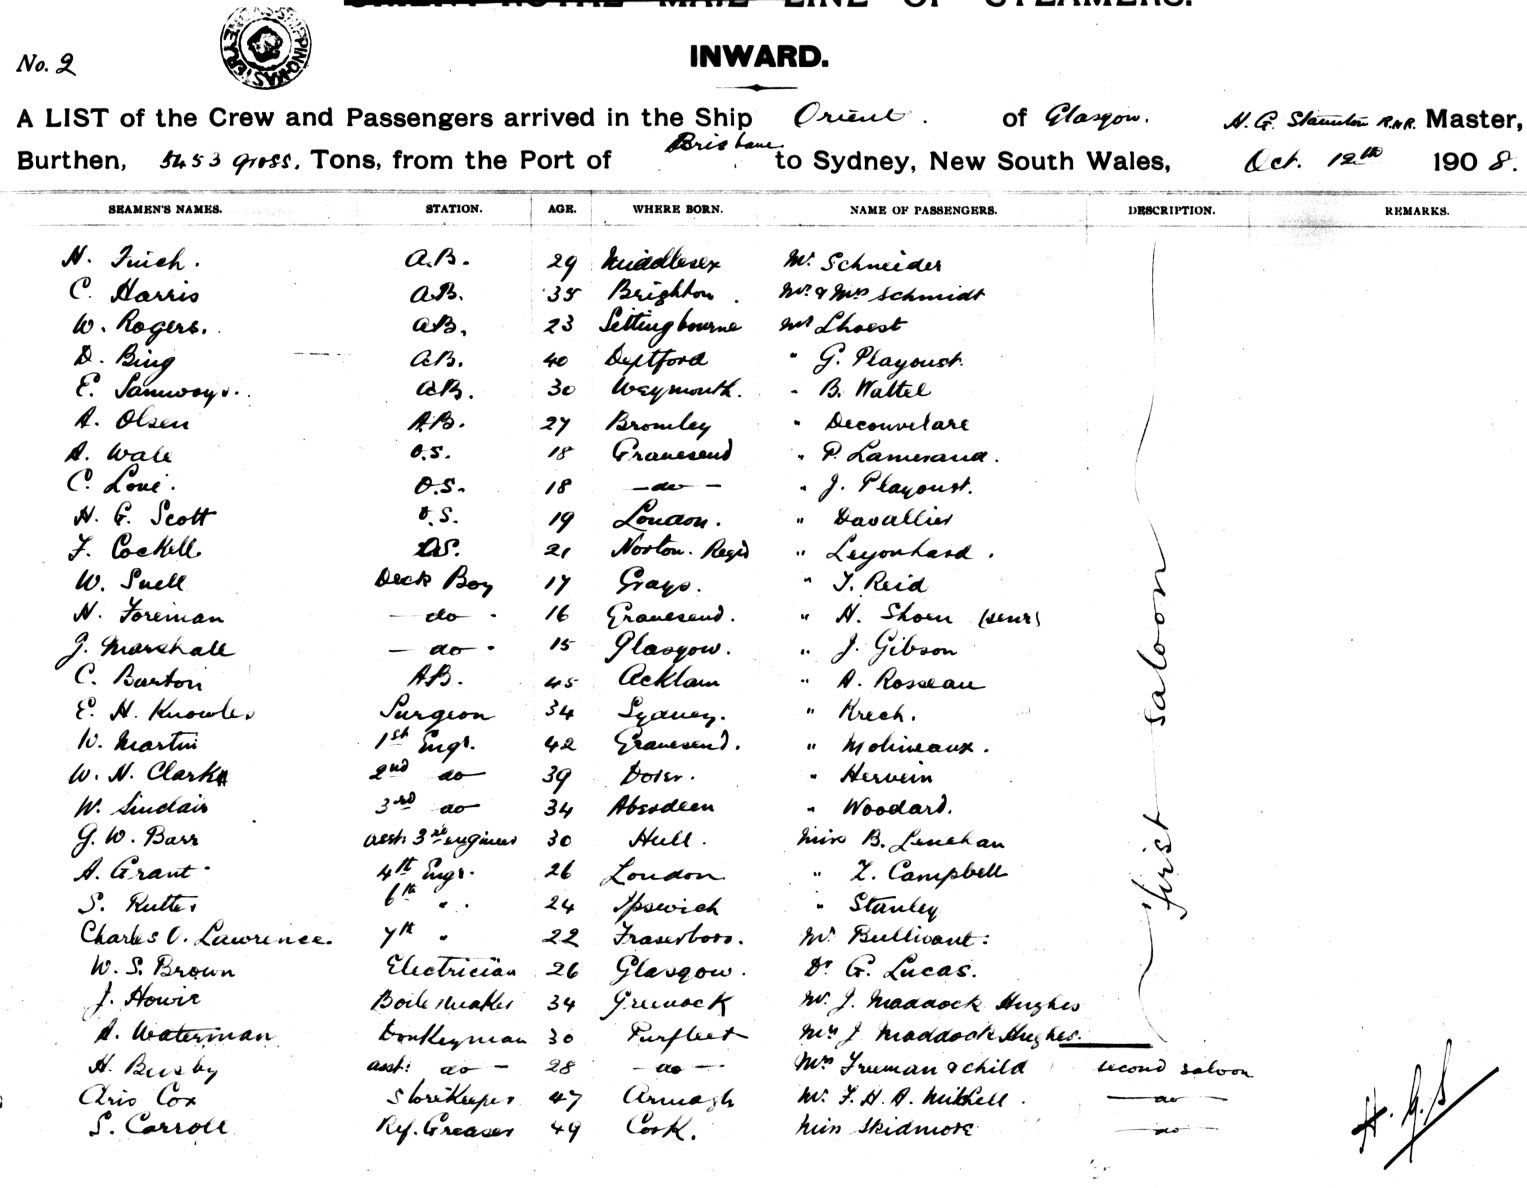 ROYAL MAIL LINE OF STEAMERS.
INWARD.
No. 2
A LIST of the Crew and Passengers arrived in the Ship Orient. of Glasgow. H. G. Staunton R.N.R. Master,
Burthen, 5453 gross. Tons, from the Port of Brisbane to Sydney, New South Wales, Oct. 12th 1908.
SEAMEN'S NAMES. STATION. AGE. WHERE BORN. NAME OF PASSENGERS. DESCRIPTION. REMARKS.
H. Finch. A.B. 29 Middlesex Mr Schneider
C. Harris A.B. 35 Brighton. Mr & Mrs Schmidt
W. Rogers. A.B. 23 Sittingbourne Mr Lhoest
D. Bing A.B. 40 Deptford " G. Playoust.
E. Samways. A.B. 30 Weymouth. " B. Wattel
A. Olsen A.B. 27 Bromley " Decouvelare
A. Wale O.S. 18 Gravesend " P. Lamerand.
C. Love. O.S. 18 — do — " J. Playoust.
H. G. Scott O.S. 19 London. " Davallier
F. Cockell O.S. 21 Norton. Regis " Leyonhard.
W. Snell Deck Boy 17 Grays. " T. Reid
H. Foreman — do - 16 Gravesend. " H. Shorn (senr)
J. Marshall — do - 15 Glasgow. " J. Gibson
C. Barton A.B. 45 Acklam " A. Rosseau
E. H. Knowles Surgeon 34 Sydney. " Krech.
W. Martin 1st Engr. 42 Gravesend. " Molineaux.
W. H. Clark 2nd do 39 Dover. " Hervein
W. Sinclair 3rd do 34 Aberdeen " Woodard.
G. W. Barr asst. 3rd engineer 30 Hull. Miss B. Lenehan
A. Grant 4th Engr. 26 London " Z. Campbell
S. Rutter 6th " 24 Ipswich " Stanley
Charles O. Lawrence. 7th " 22 Fraserboro. Mr Bullivant:
W. S. Brown Electrician 26 Glasgow. Dr G. Lucas.
J. Howie Boilermaker 34 Greenock Mr. J. Maddock Hughes
A. Waterman Donkeyman 30 Purfleet Mrs J Maddock Hughes.
first saloon
H. Busby asst: do — 28 — do — Mrs Truman & child second saloon
Cox Storekeeper 47 Armagh Mr. F. H. A. Mitchell. — do —
S. Carroll Rf. Greaser 49 Cork. Miss Skidmore — do —
H. G. S